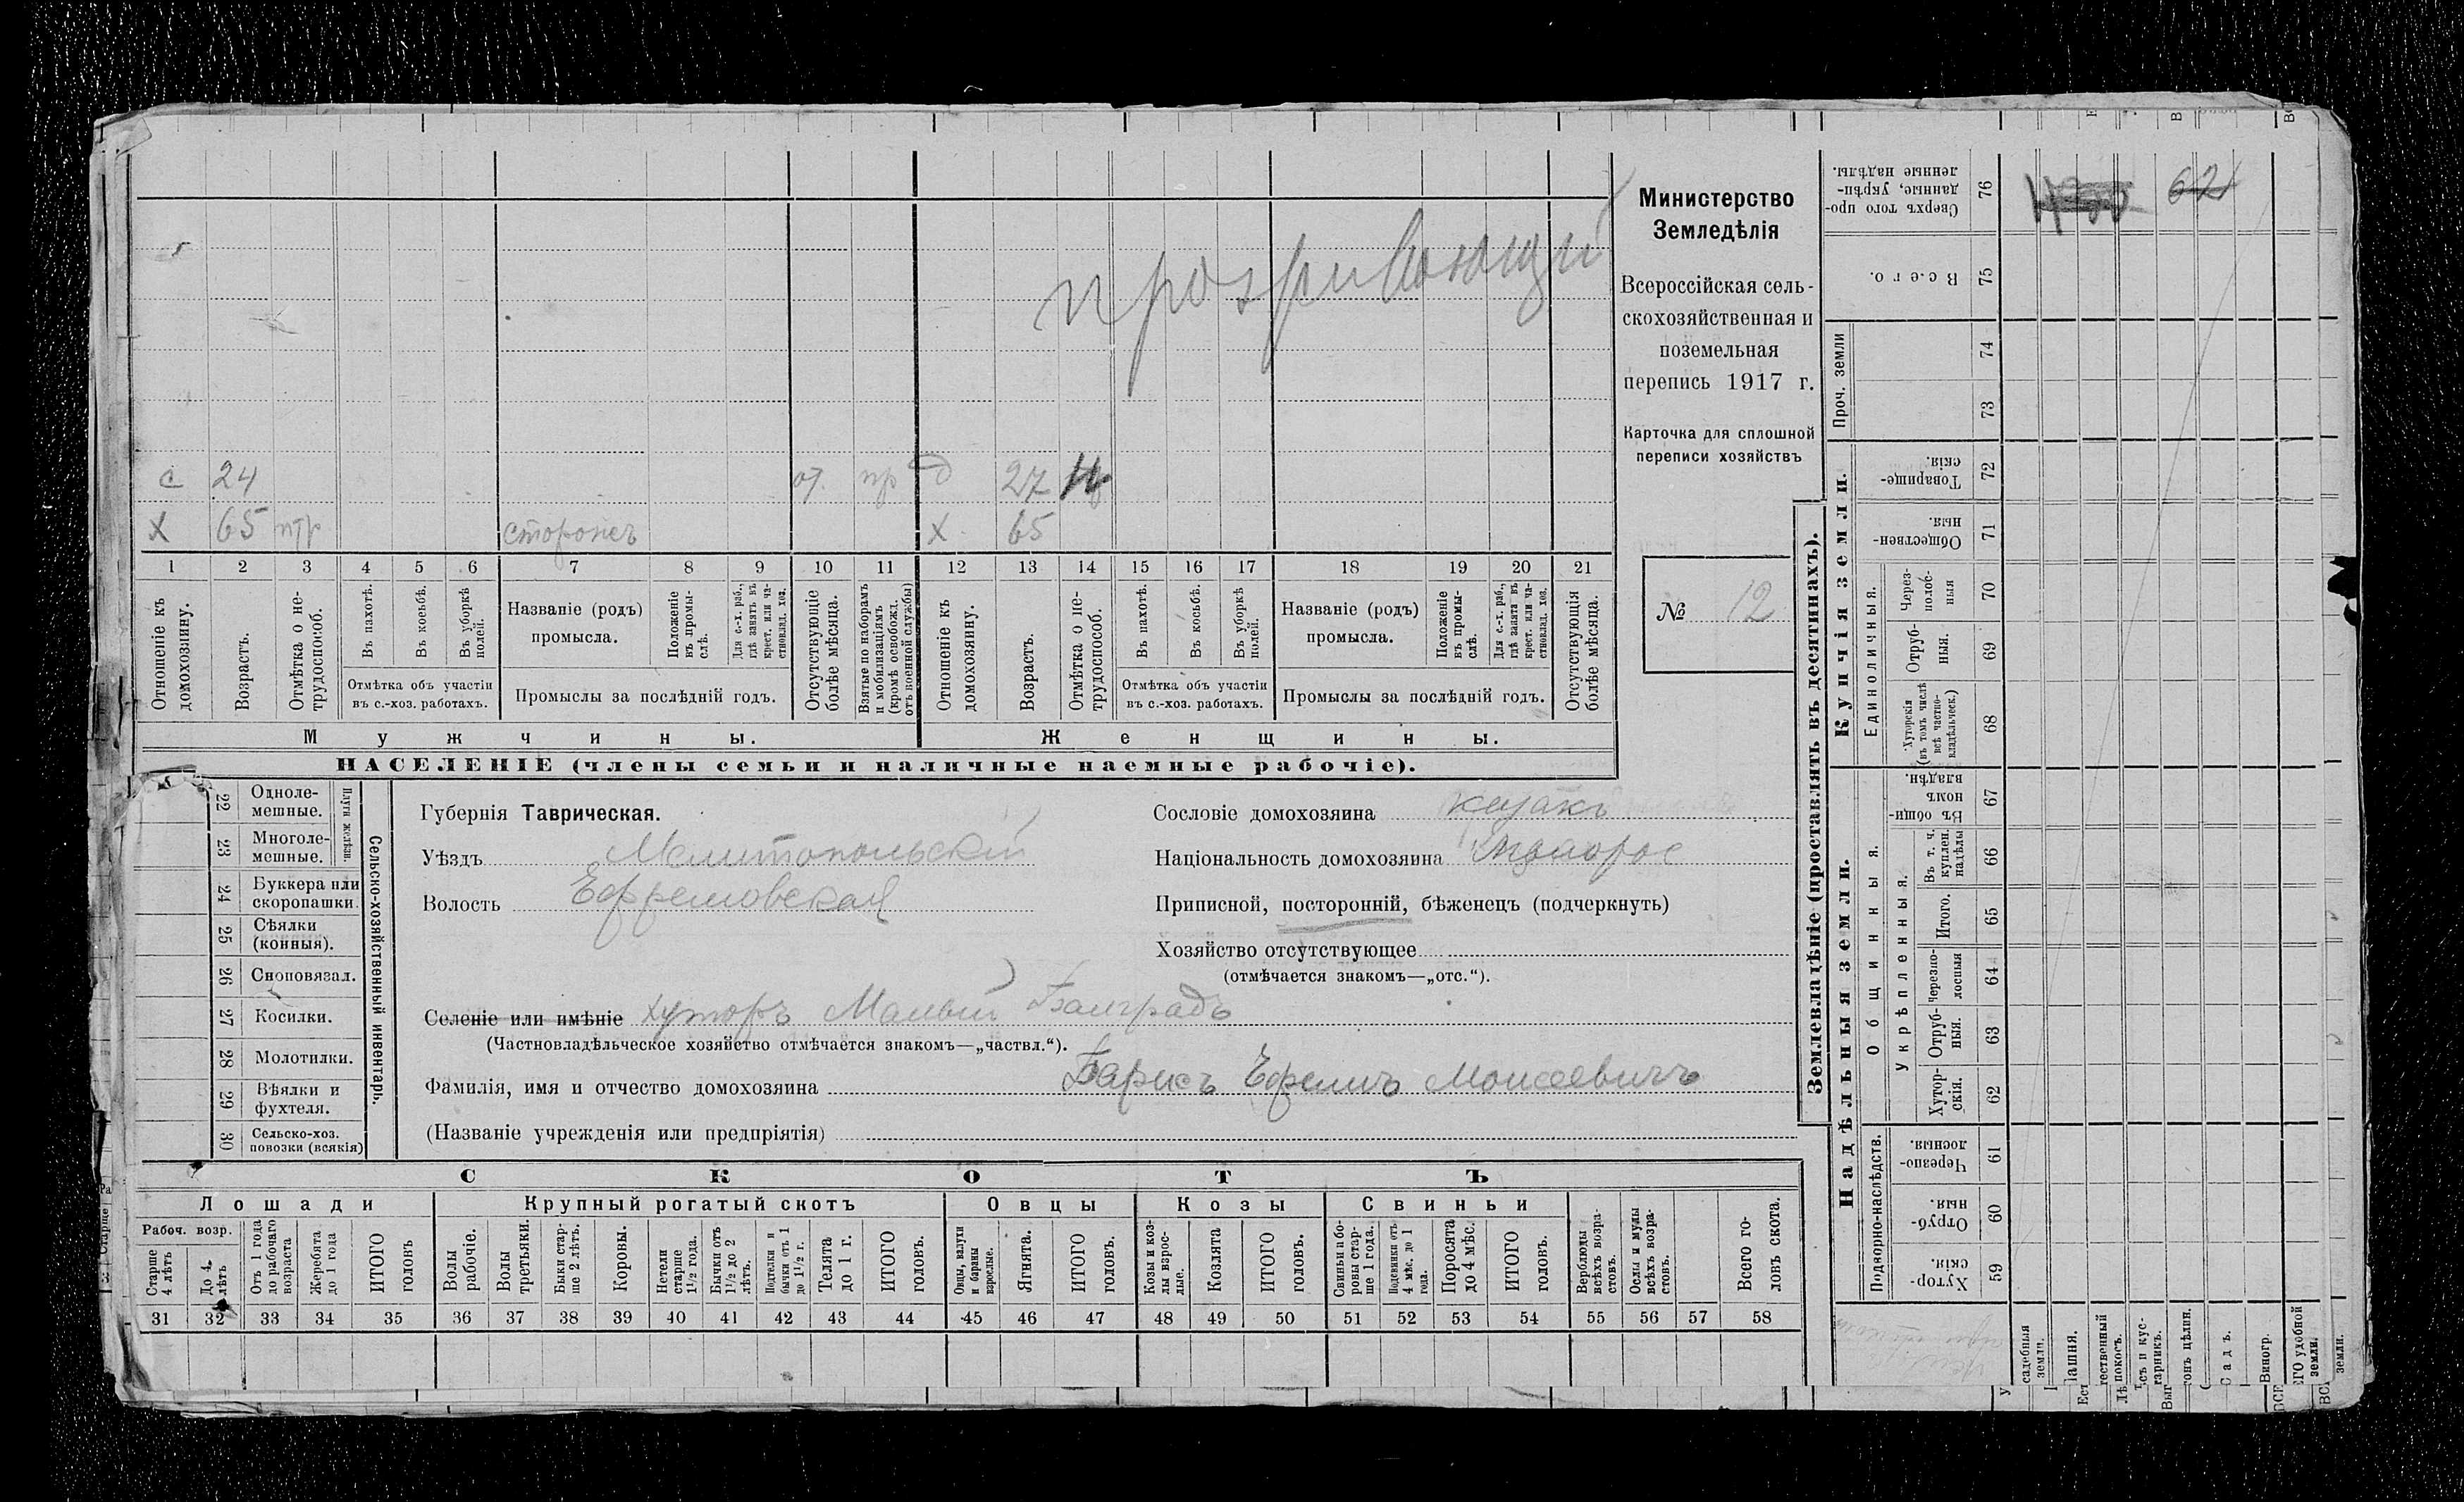 Министерство
Земледѣлія
Всероссійская сель-
скохозяйственная и
поземельная
перепись 1917 г.
Карточка для сплошной
переписи хозяйствъ
№ 12
с 24 от. пр д 27
Х 65 нтр Х 65
1 2 3 4 5 6 7 8 9 10 11 12 13 14 15 16 17 18 19 20 21
Отношеніе къ домохозяину.
Возрастъ.
Отмѣтка о не-трудоспособ.
Въ пахотѣ.
Въ косьбѣ.
Въ уборкѣ полей.
Отмѣтка объ участіи
въ с.-хоз. работахъ.
Названіе (родъ)
промысла.
Положеніе въ промы-слѣ.
Для с.-х. раб., гдѣ занятъ въ крест. или ча-стновлад. хоз.
Промыслы за послѣдній годъ.
Отсутствующіе болѣе мѣсяца.
Взятые по наборамъ и мобилизаціямъ (кромѣ освобожд. отъ военной службы)
Отношеніе къ домохозяину.
Возрастъ.
Отмѣтка о не-трудоспособ.
Въ пахотѣ.
Въ косьбѣ.
Въ уборкѣ полей.
Отмѣтка объ участіи
въ с.-хоз. работахъ.
Названіе (родъ)
промысла.
Положеніе въ промы-слѣ.
Для с.-х. раб., гдѣ занята въ крест. или ча-стновлад. хоз.
Промыслы за послѣдній годъ.
Отсутствующія болѣе мѣсяца.
Мужчины. Женщины.
НАСЕЛЕНІЕ (члены семьи и наличные наемные рабочіе).
22 Одноле-мешные.
23 Многоле-мешные.
Плуги желѣзн.
24 Буккера или скоропашки.
25 Сѣялки (конныя).
26 Сноповязал.
27 Косилки.
28 Молотилки.
29 Вѣялки и фухтеля.
30 Сельско-хоз. повозки (всякія)
Сельско-хозяйственный инвентарь.
Губернія Таврическая.
Уѣздъ Мелитопольскій
Волость Ефремовская
Селеніе или имѣніе хуторъ Малый Баиградъ
(Частновладѣльческое хозяйство отмѣчается знакомъ—„частвл.“).
Фамилія, имя и отчество домохозяина Барисъ Ефремъ Моисеевичъ
(Названіе учрежденія или предпріятія)
Сословіе домохозяина казакъ
Національность домохозяина малорос
Приписной, посторонній, бѣженецъ (подчеркнуть)
Хозяйство отсутствующее
(отмѣчается знакомъ—„отс.“).
СКОТЪ
Лошади Крупный рогатый скотъ Овцы Козы Свиньи
Рабоч. возр.
Старше 4 лѣтъ
До 4 лѣтъ
Отъ 1 года до рабочаго возраста
Жеребята до 1 года
ИТОГО головъ
Волы рабочіе.
Волы третьяки.
Быки стар-ше 2 лѣтъ.
Коровы.
Нетели старше 1½ года.
Бычки отъ 1½ до 2 лѣтъ.
Подтелки и бычки отъ 1 до 1½ г.
Телята до 1 г.
ИТОГО головъ.
Овцы, валухи и бараны взрослые.
Ягнята.
ИТОГО головъ.
Козы и коз-лы взрос-лые.
Козлята
ИТОГО головъ.
Свиньи и бо-ровы стар-ше 1 года.
Подсвинки отъ 4 мѣс. до 1 года.
Поросята до 4 мѣс.
ИТОГО головъ.
Верблюды всѣхъ возра-стовъ.
Ослы и мулы всѣхъ возра-стовъ.
Всего го-ловъ скота.
31 32 33 34 35 36 37 38 39 40 41 42 43 44 45 46 47 48 49 50 51 52 53 54 55 56 57 58
Землевладѣніе (проставлять въ десятинахъ).
Сверхъ того про-данные, укрѣп-ленные надѣлы. 76 62
Всего. 75
Проч. земли 74 73
Купчія земли.
Товарище-скія. 72
Обществен-ныя. 71
Единоличныя.
Через-полос-ныя 70
Отруб-ныя. 69
Хуторскія (въ томъ числѣ всѣ частно-владѣльческ.) 68
Надѣльныя земли.
Общинныя.
Въ общи-номъ владѣн. 67
Укрѣпленныя.
Въ т. ч. куплен. надѣлы 66
Итого. 65
Черезпо-лосныя 64
Отруб-ныя. 63
Хутор-скія. 62
Подворно-наслѣдств.
Черезпо-лосныя. 61
Отруб-ныя. 60
Хутор-скія. 59